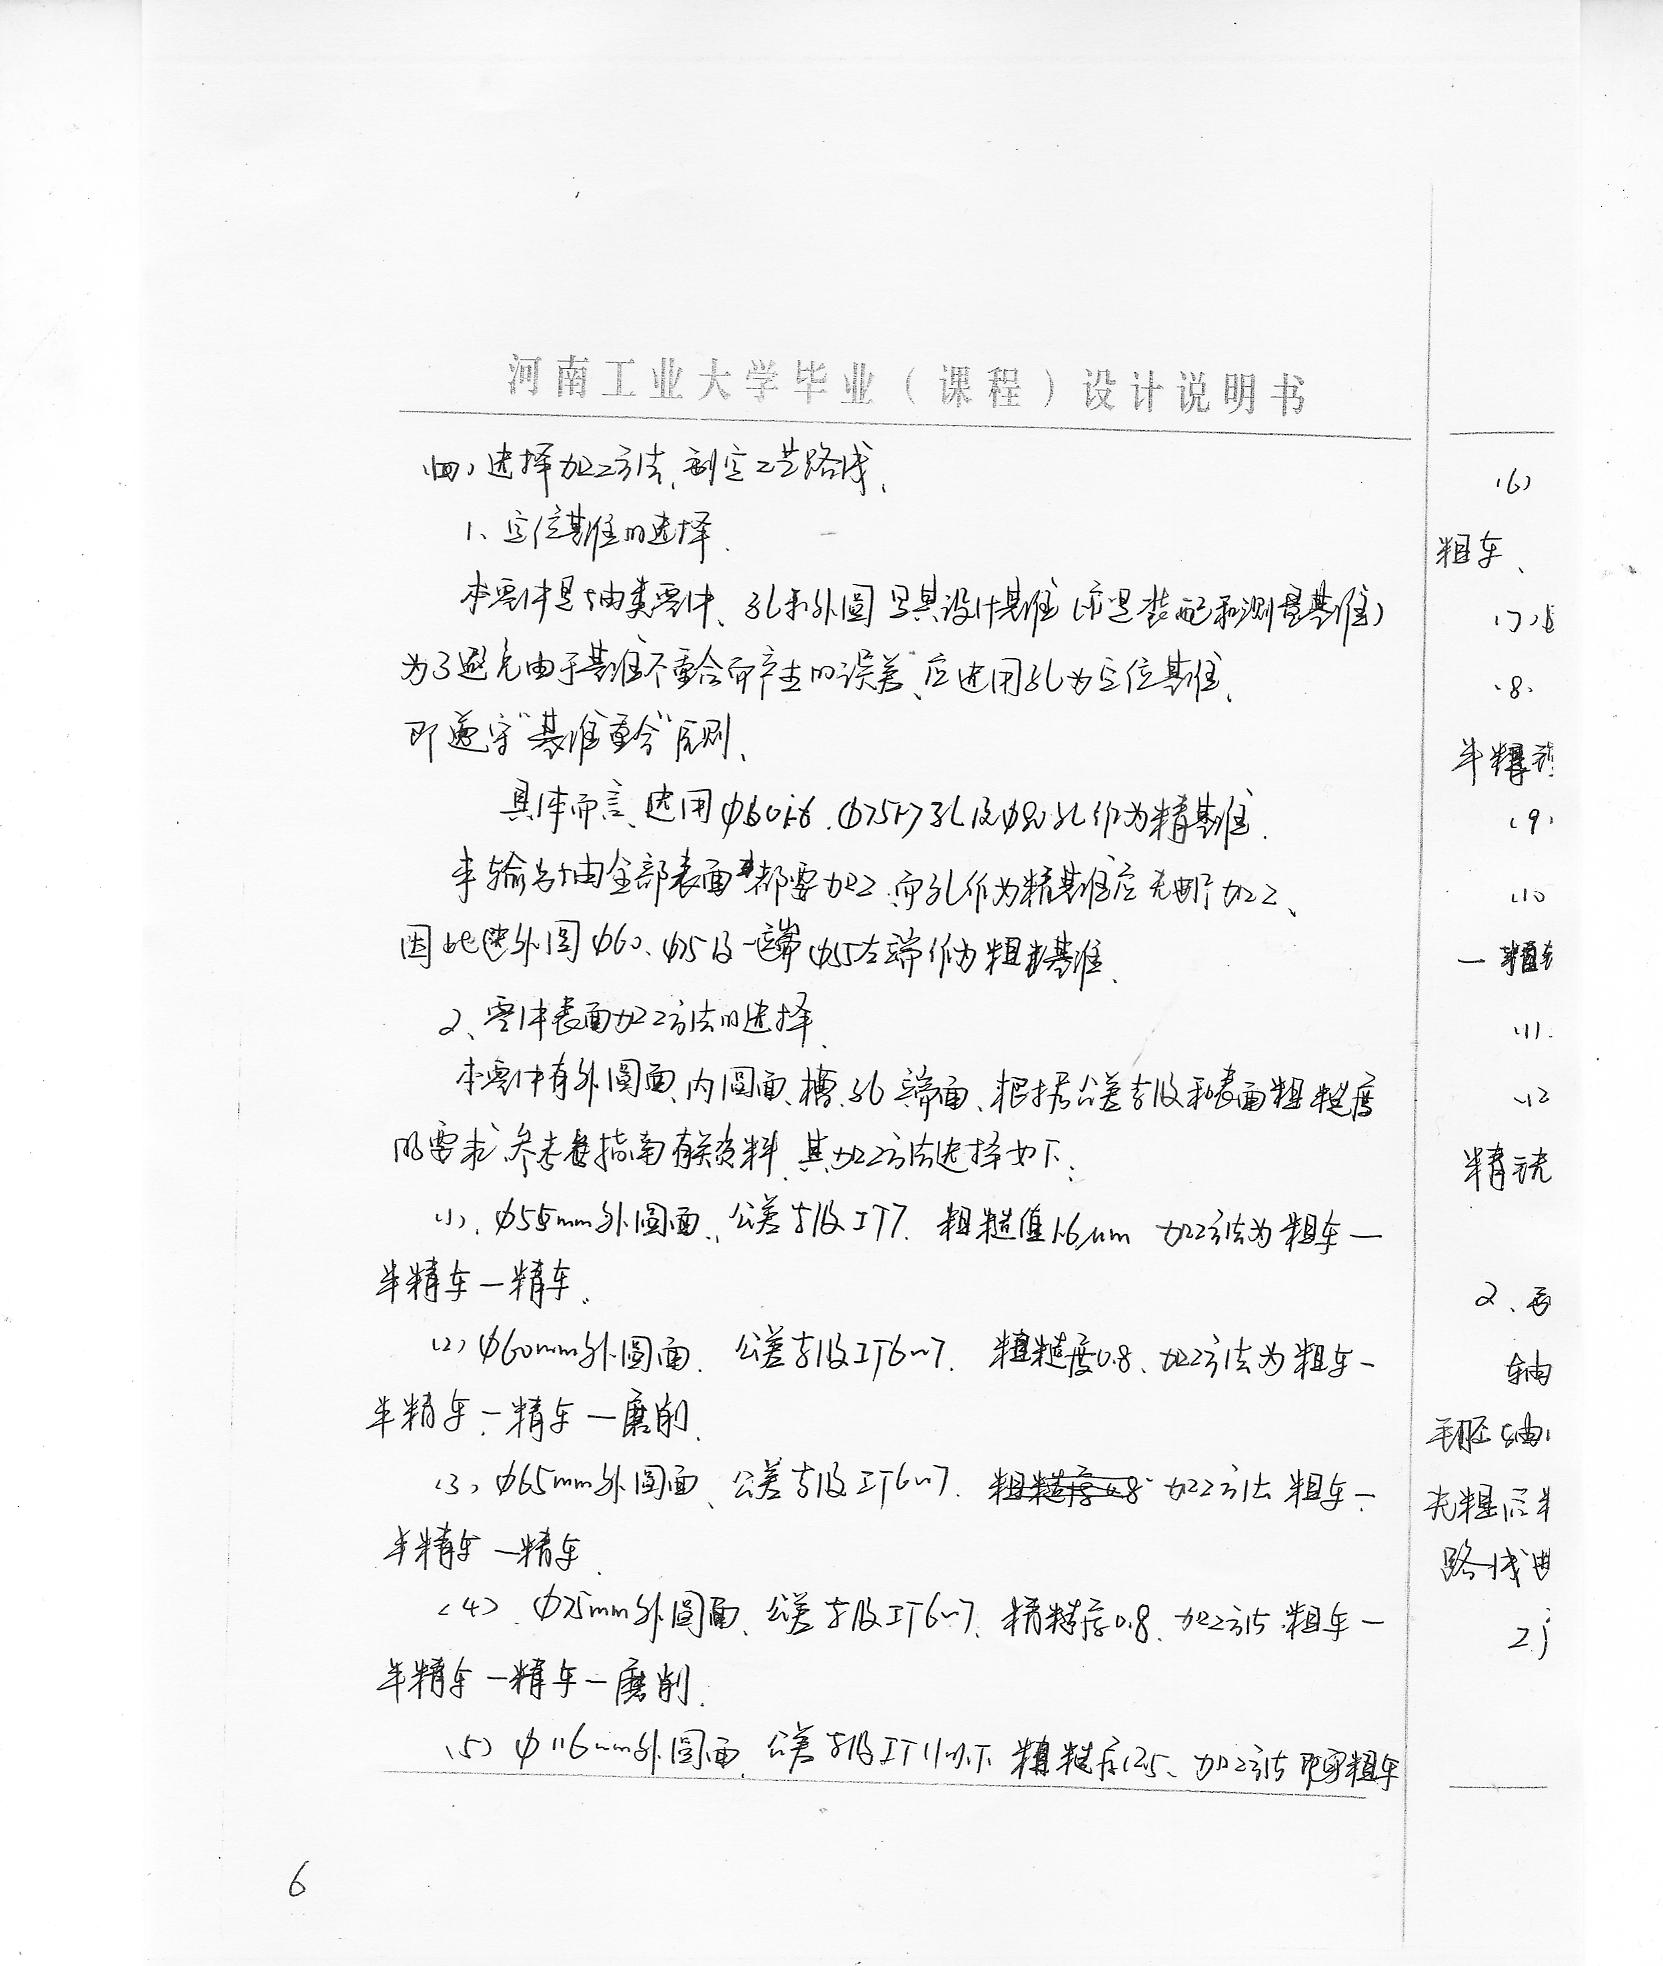 河南工业大学毕业（课程）设计说明书
(四) 选择加工方法，制定工艺路线。
1、定位基准的选择。
本零件是轴类零件、孔和外圆是其设计基准（亦是装配和测量基准）
为了避免由于基准不重合而产生的误差，应选用孔为定位基准，
即遵守“基准重合”原则、
具体而言，选用φ60 φ75 孔及φ80孔作为精基准.
本输出轴全部表面都要加工，而孔作为精基准应先加工、
因此选外圆φ60、φ75及一端φ55左端作为粗基准.
2、零件表面加工方法的选择.
本零件有外圆面、内圆面、槽、孔端面、根据公差等级和表面粗糙度
的要求，参考指南有关资料，其加工方法选择如下：
(1)、φ55mm外圆面、公差等级IT7. 粗糙值1.6μm 加工方法为粗车—
半精车—精车.
(2) φ60mm外圆面. 公差等级IT6~7. 粗糙度0.8、加工方法为粗车—
半精车—精车—磨削.
(3) φ65mm外圆面、公差等级IT6~7. 粗糙度0.8 加工方法 粗车—
半精车—精车.
(4). φ75mm外圆面、公差等级IT6~7、粗糙度0.8、加工方法 粗车—
半精车—精车—磨削.
(5) φ116mm外圆面. 公差等级IT11以下 粗糙度12.5、加工方法 即为粗车
6
(6)
粗车、
(7)
(8)
半精
(9)
(10
一
(11
(12
精铣
2、
轴
毛胚轴
先粗后半
路线
工